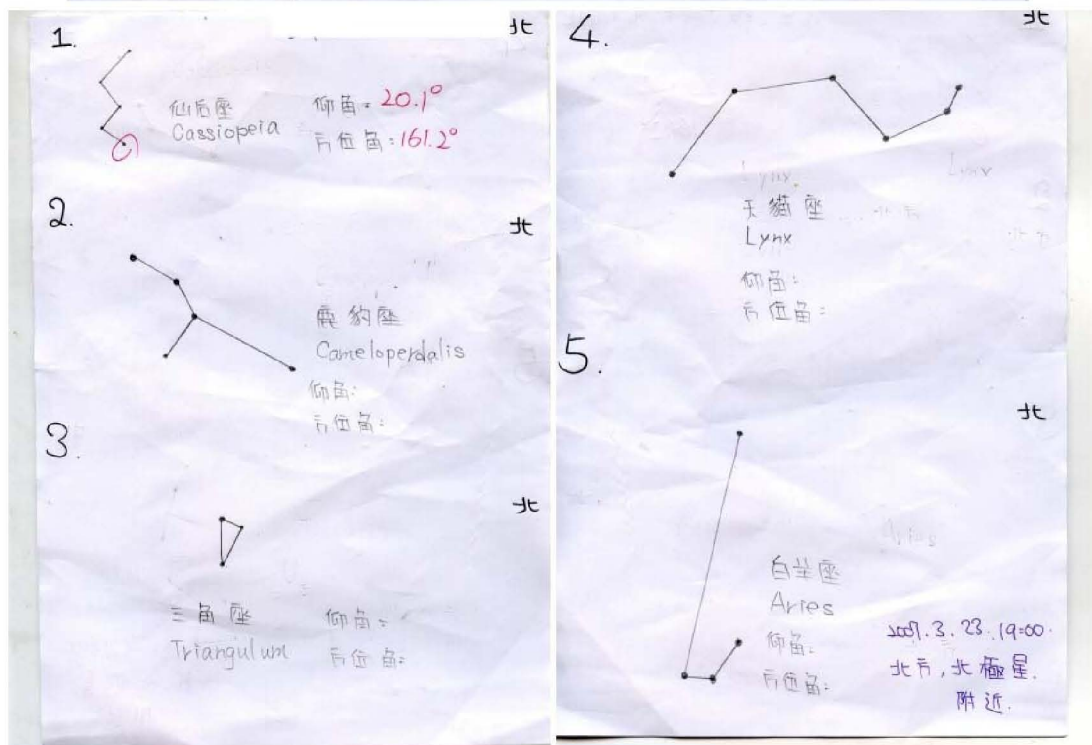 1.
北
仙后座
Cassiopeia
仰角：20.1°
方位角：161.2°
2.
北
鹿豹座
Cameloperdalis
仰角：
方位角：
3.
北
三角座
Triangulum
仰角：
方位角：
4.
北
Lynx
Lynx
天貓座
北方
Lynx
仰角：
方位角：
5.
北
Aries
白羊座
Aries
仰角：
方位角：
2007.3.23.19:00.
北方，北極星.
附近.